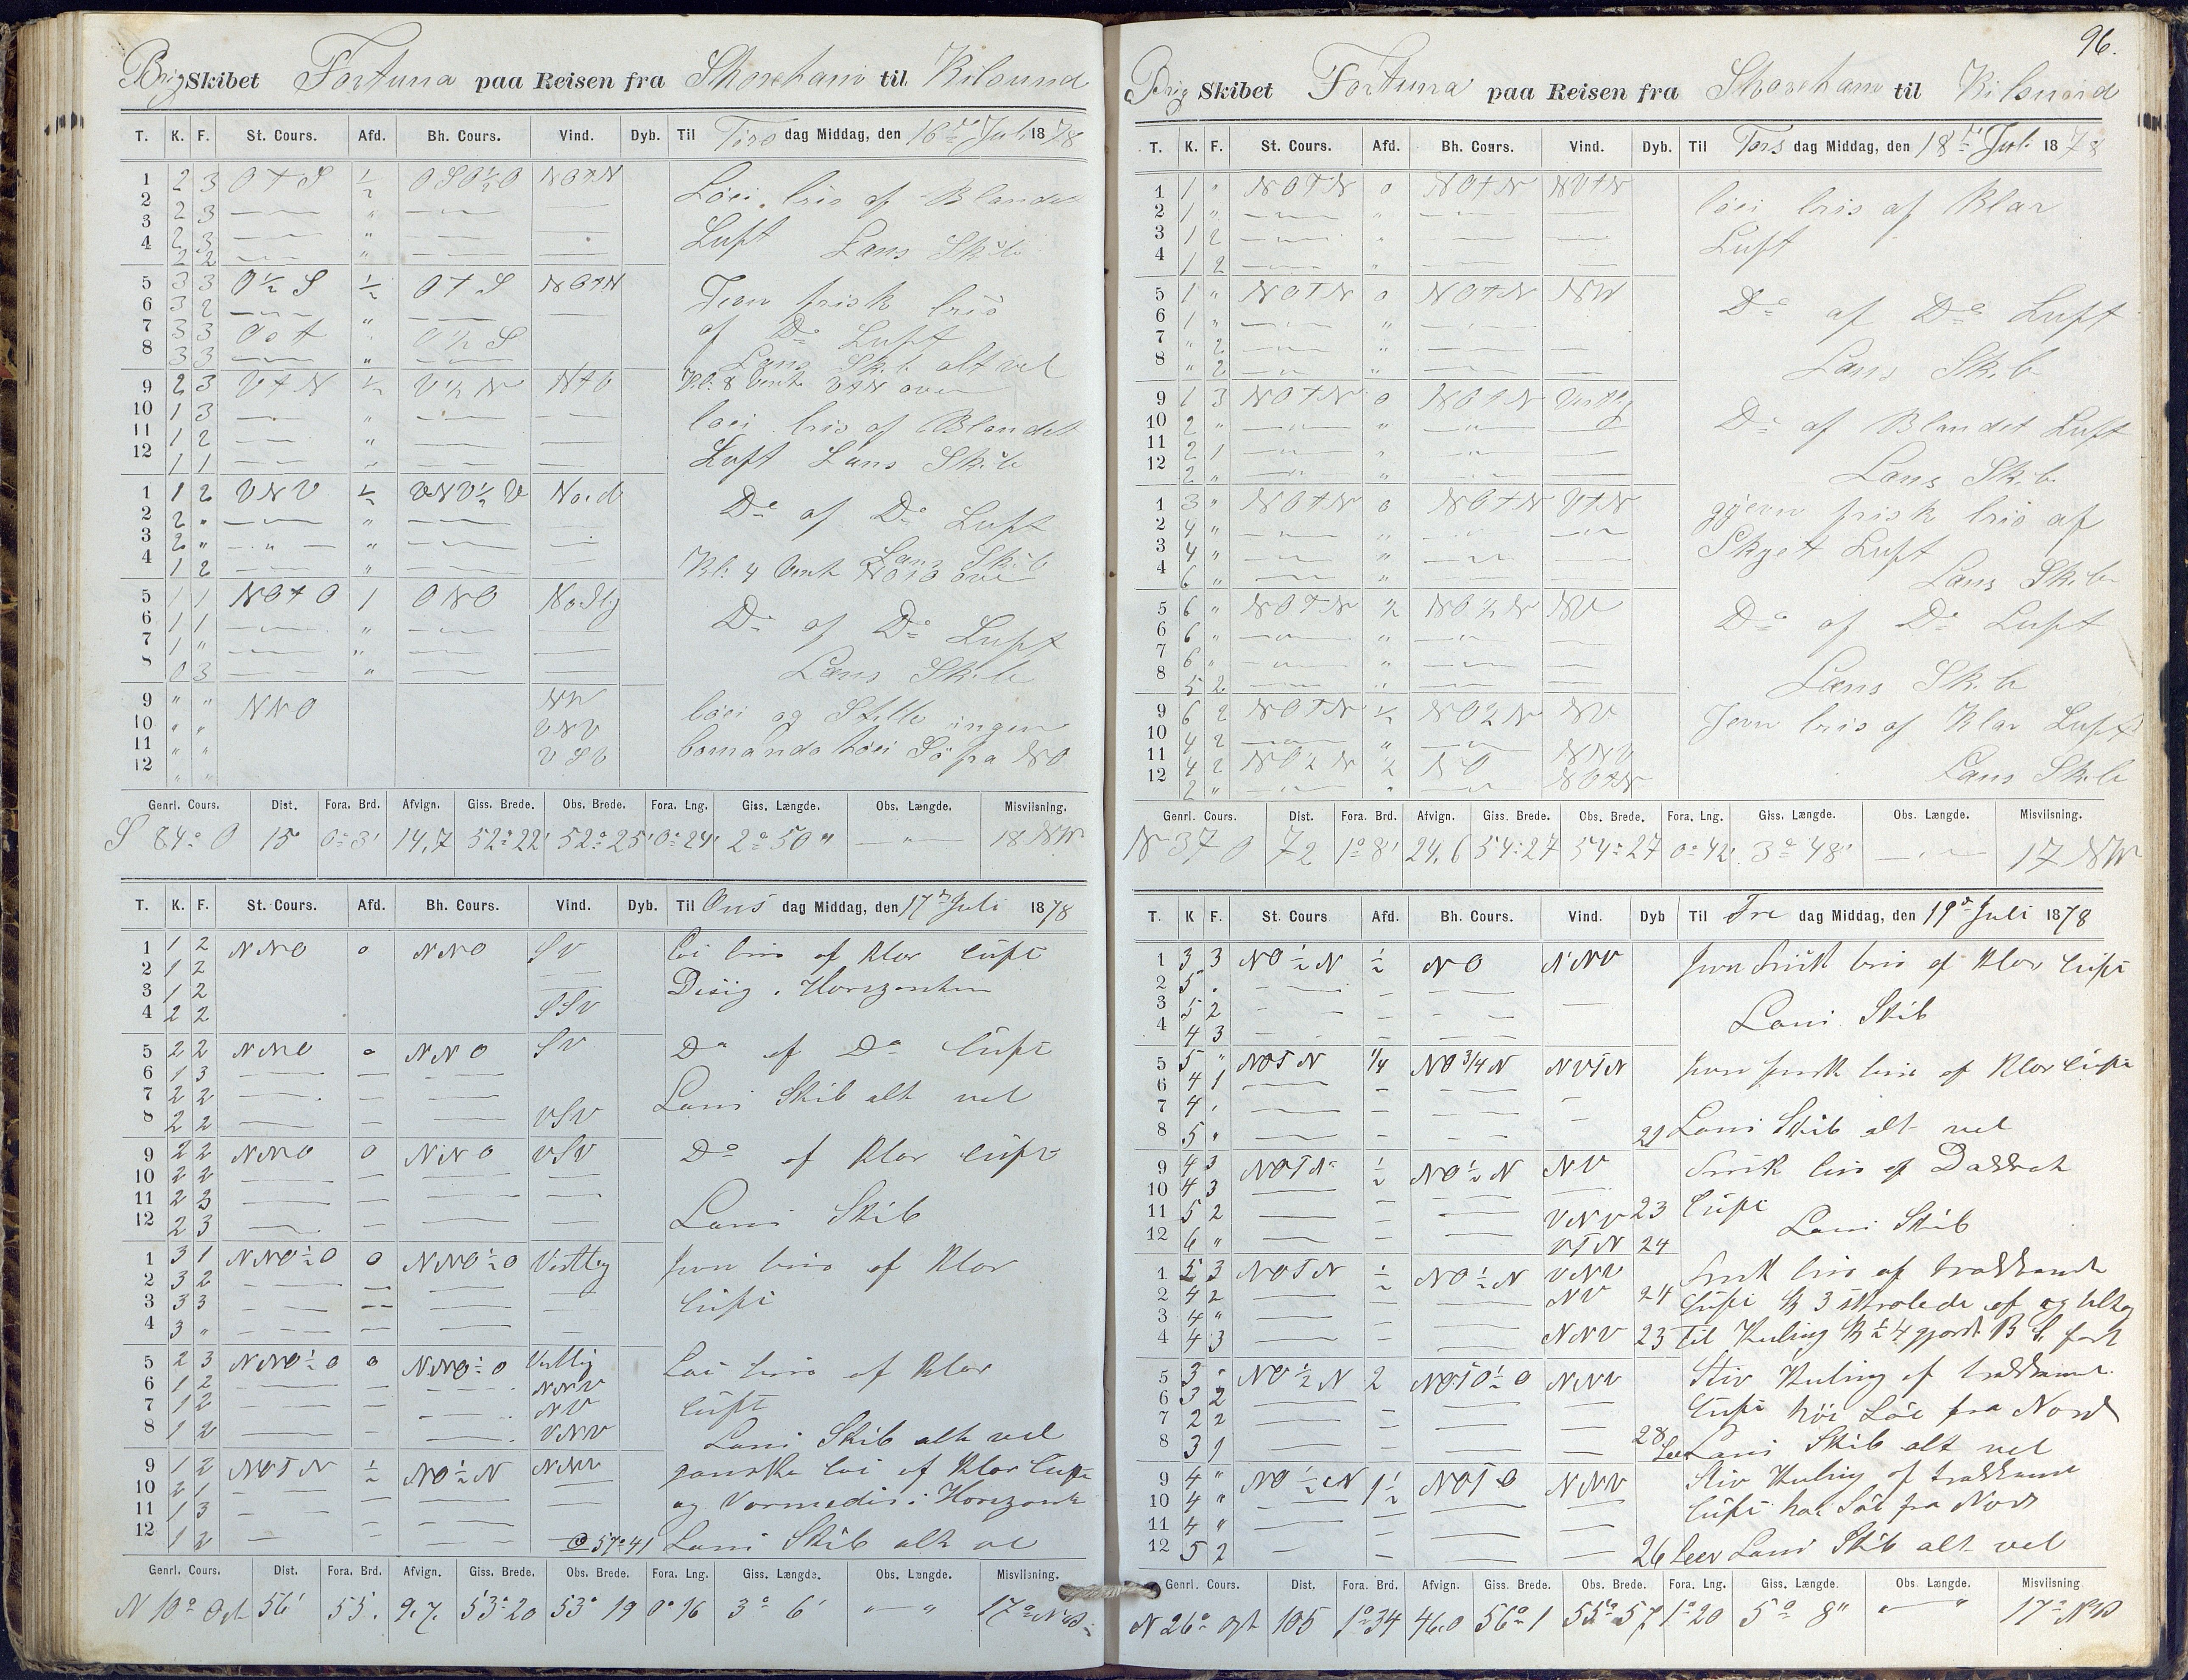 Brig Skibet Fortuna paa Reisen fra Shoreham til Kilsund
T. K. F. St. Cours. Afd. Bh. Cours. Vind. Dyb. Til Tirs dag Middag, den 16de Juli 1878
1 2 3 O t S 1/2 OSO 1/2 O NOtN Løi bris af Blandet
2 2 3 — " — —
3 2 3 — " — — Luft Læns Skib
4 2 2 — " — —
5 3 3 O 1/2 S 1/2 O t S NOtN Jevn frisk bris
6 3 2 — " — — af Do Luft
7 3 3 Ost " O 1/2 S
8 3 3 — " — Læns Skib alt vel
9 2 3 VtN 1/2 V 1/2 N Kl. 8 Vent VtN over
10 1 3 — " — — løi bris af Blandet
11 1 2 — " — —
12 1 1 — " — — Luft Læns Skib
1 1 2 VNV 1/2 VNV 1/2 V Nord Do af Do Luft
2 2 " — " — —
3 2 " — " — — Læns Skib
4 1 2 — " — — Kl. 4 Vent over
5 1 1 NOtO 1 ONO Nordlig Do af Do Luft
6 1 1 — " — —
7 1 " — " — —
8 0 3 — " — — Læns Skib
9 " " NNO NV løi og Stille ingen
10 " " VNV
11 " " VSV Søe fra NO
12 " "
Genrl. Cours. Dist. Fora. Brd. Afvign. Giss. Brede. Obs. Brede. Fora. Lng. Giss. Længde. Obs. Længde. Misviisning.
S 84° O 15 0° 3' 14,7 52° 22' 52° 25' 0° 24' 2° 50 " — " — 18 NW
T. K. F. St. Cours. Afd. Bh. Cours. Vind. Dyb. Til Ons dag Middag, den 17de Juli 1878
1 1 2 NNO 0 NNO SV Løi bris af klar Luft
2 1 2 —
3 1 2 — Disig i Horizonten
4 2 2 SSV
5 2 2 NNO 0 NNO SV Do af Do Luft
6 1 3 — — —
7 2 2 — — — Læns Skib alt vel
8 2 2 — — — VSV
9 2 2 NNO 0 NNO VSV Do af klar Luft
10 2 2 — — — —
11 2 3 — — — —
12 2 3 — — — — Læns Skib
1 3 1 NNO 1/2 O 0 NNO 1/2 O Vestlig Jevn bris af klar
2 3 2 — — — —
3 3 3 — — — — Luft
4 3 " — — — —
5 2 3 NNO 1/2 O 0 NNO 1/2 O Vestlig Løi bris af klar
6 1 2 — — — NNV
7 1 2 — — — NV Luft
8 1 2 — — — VNV Læns Skib alt vel
9 1 2 NOTN 1/2 NO 1/2 N NNV ganske løi af klar Luft
10 2 1 — — — —
11 1 3 — — — og Varmedis i Horizont
12 1 2 — — — 57° 41 Læns Skib alt vel
Genrl. Cours. Dist. Fora. Brd. Afvign. Giss. Brede. Obs. Brede. Fora. Lng. Giss. Længde. Obs. Længde. Misviisning.
N 10° Ost 56' 55. 9.7. 53° 20 53° 19 0° 16 3° 6' " — " 17°
96.
Brig Skibet Fortuna paa Reisen fra Shoreham til Kilsund
T. K. F. St. Cours. Afd. Bh. Cours. Vind. Dyb. Til Tors dag Middag, den 18de Juli 1878
1 1 " NOTN 0 NOtN NVtN løi bris af Klar
2 1 " — " — —
3 1 2 — " — — Luft
4 1 2 — " — —
5 1 " NOTN 0 NOtN NW Do af Do Luft
6 1 " — " —
7 " 2 — " — —
8 " 2 — " — — Læns Skib
9 1 3 NOtN 0 NOtN Vestlig Do af Blandet Luft
10 2 " — " — —
11 2 1 — " — —
12 2 " — " — — Læns Skib
1 3 " NOtN 0 NOtN VtN gjevn frisk bris af
2 4 " — " — — Skyet Luft
3 4 " — " — —
4 6 " — " — — Læns Skib
5 6 " NOTN 1/2 NO 1/2 N NV Do af Do Luft
6 6 " — " — —
7 6 " — " — —
8 5 2 — " — — Læns Skib
9 6 2 NOTN 1/2 NO 1/2 N NV Jevn bris af Klar Luft
10 4 2 — " —
11 4 2 NO 1/2 N 1/2 NO NNV Læns Skib
12 2 " — " —
Genrl. Cours. Dist. Fora. Brd. Afvign. Giss. Brede. Obs. Brede. Fora. Lng. Giss. Længde. Obs. Længde. Misviisning.
N 37 O 72 1° 8' 24,6 54° 27 54° 27 0° 42' 3° 48' — " — 17 NW
T. K F. St. Cours Afd. Bh. Cours. Vind. Dyb Til Fre dag Middag, den 19de Juli 1878
1 3 3 NO 1/2 N 1/2 NO NNV Jevn Frisk bris af klar Luft
2 5 . — — —
3 5 2 — — — — Læns Skib
4 4 3 — — —
5 5 " NOTN 1/4 NO 3/4 N NVTN Jevn frisk bris af klar Luft
6 4 1 — — —
7 4 ' — — — —
8 5 " — — — — 21 Læns Skib alt vel
9 4 3 NOTN 1/2 NO 1/2 N NV Frisk bris af
10 4 3 — — — —
11 5 2 — — — VNV 23 Luft Læns Skib
12 6 " — — — VTN 24
1 5 3 NOTN 1/2 NO 1/2 N VNV Frisk bris af
2 4 2 — — — NV 24 Luft Kl 3 af og
3 4 " — — —
4 4 3 — — — NNV 23 Til Kuling Kl 1/2 4 gjorde fast
5 3 " NO 1/2 N 2 NOTO 1/2 O NNV Stiv Kuling af
6 3 2 — — — —
7 2 2 — — — — Luft høi Søe fra Nord
8 3 1 — — — — 28 Leer Læns Skib alt vel
9 4 " NO 1/2 N 1 1/2 NOTO NNV Stiv Kuling af
10 4 " — — — — Luft høi Søe fra Nord
11 4 " — — — —
12 5 2 — — — — 26 Leer Læns Skib alt vel
Genrl. Cours. Dist. Fora. Brd. Afvign. Giss. Brede. Obs. Brede. Fora. Lng. Giss. Længde. Obs Længde. Misviisning
N 26° Ost 105 1° 34 46.0 56° 1 55° 57 1° 20 5° 8" " — " 17°